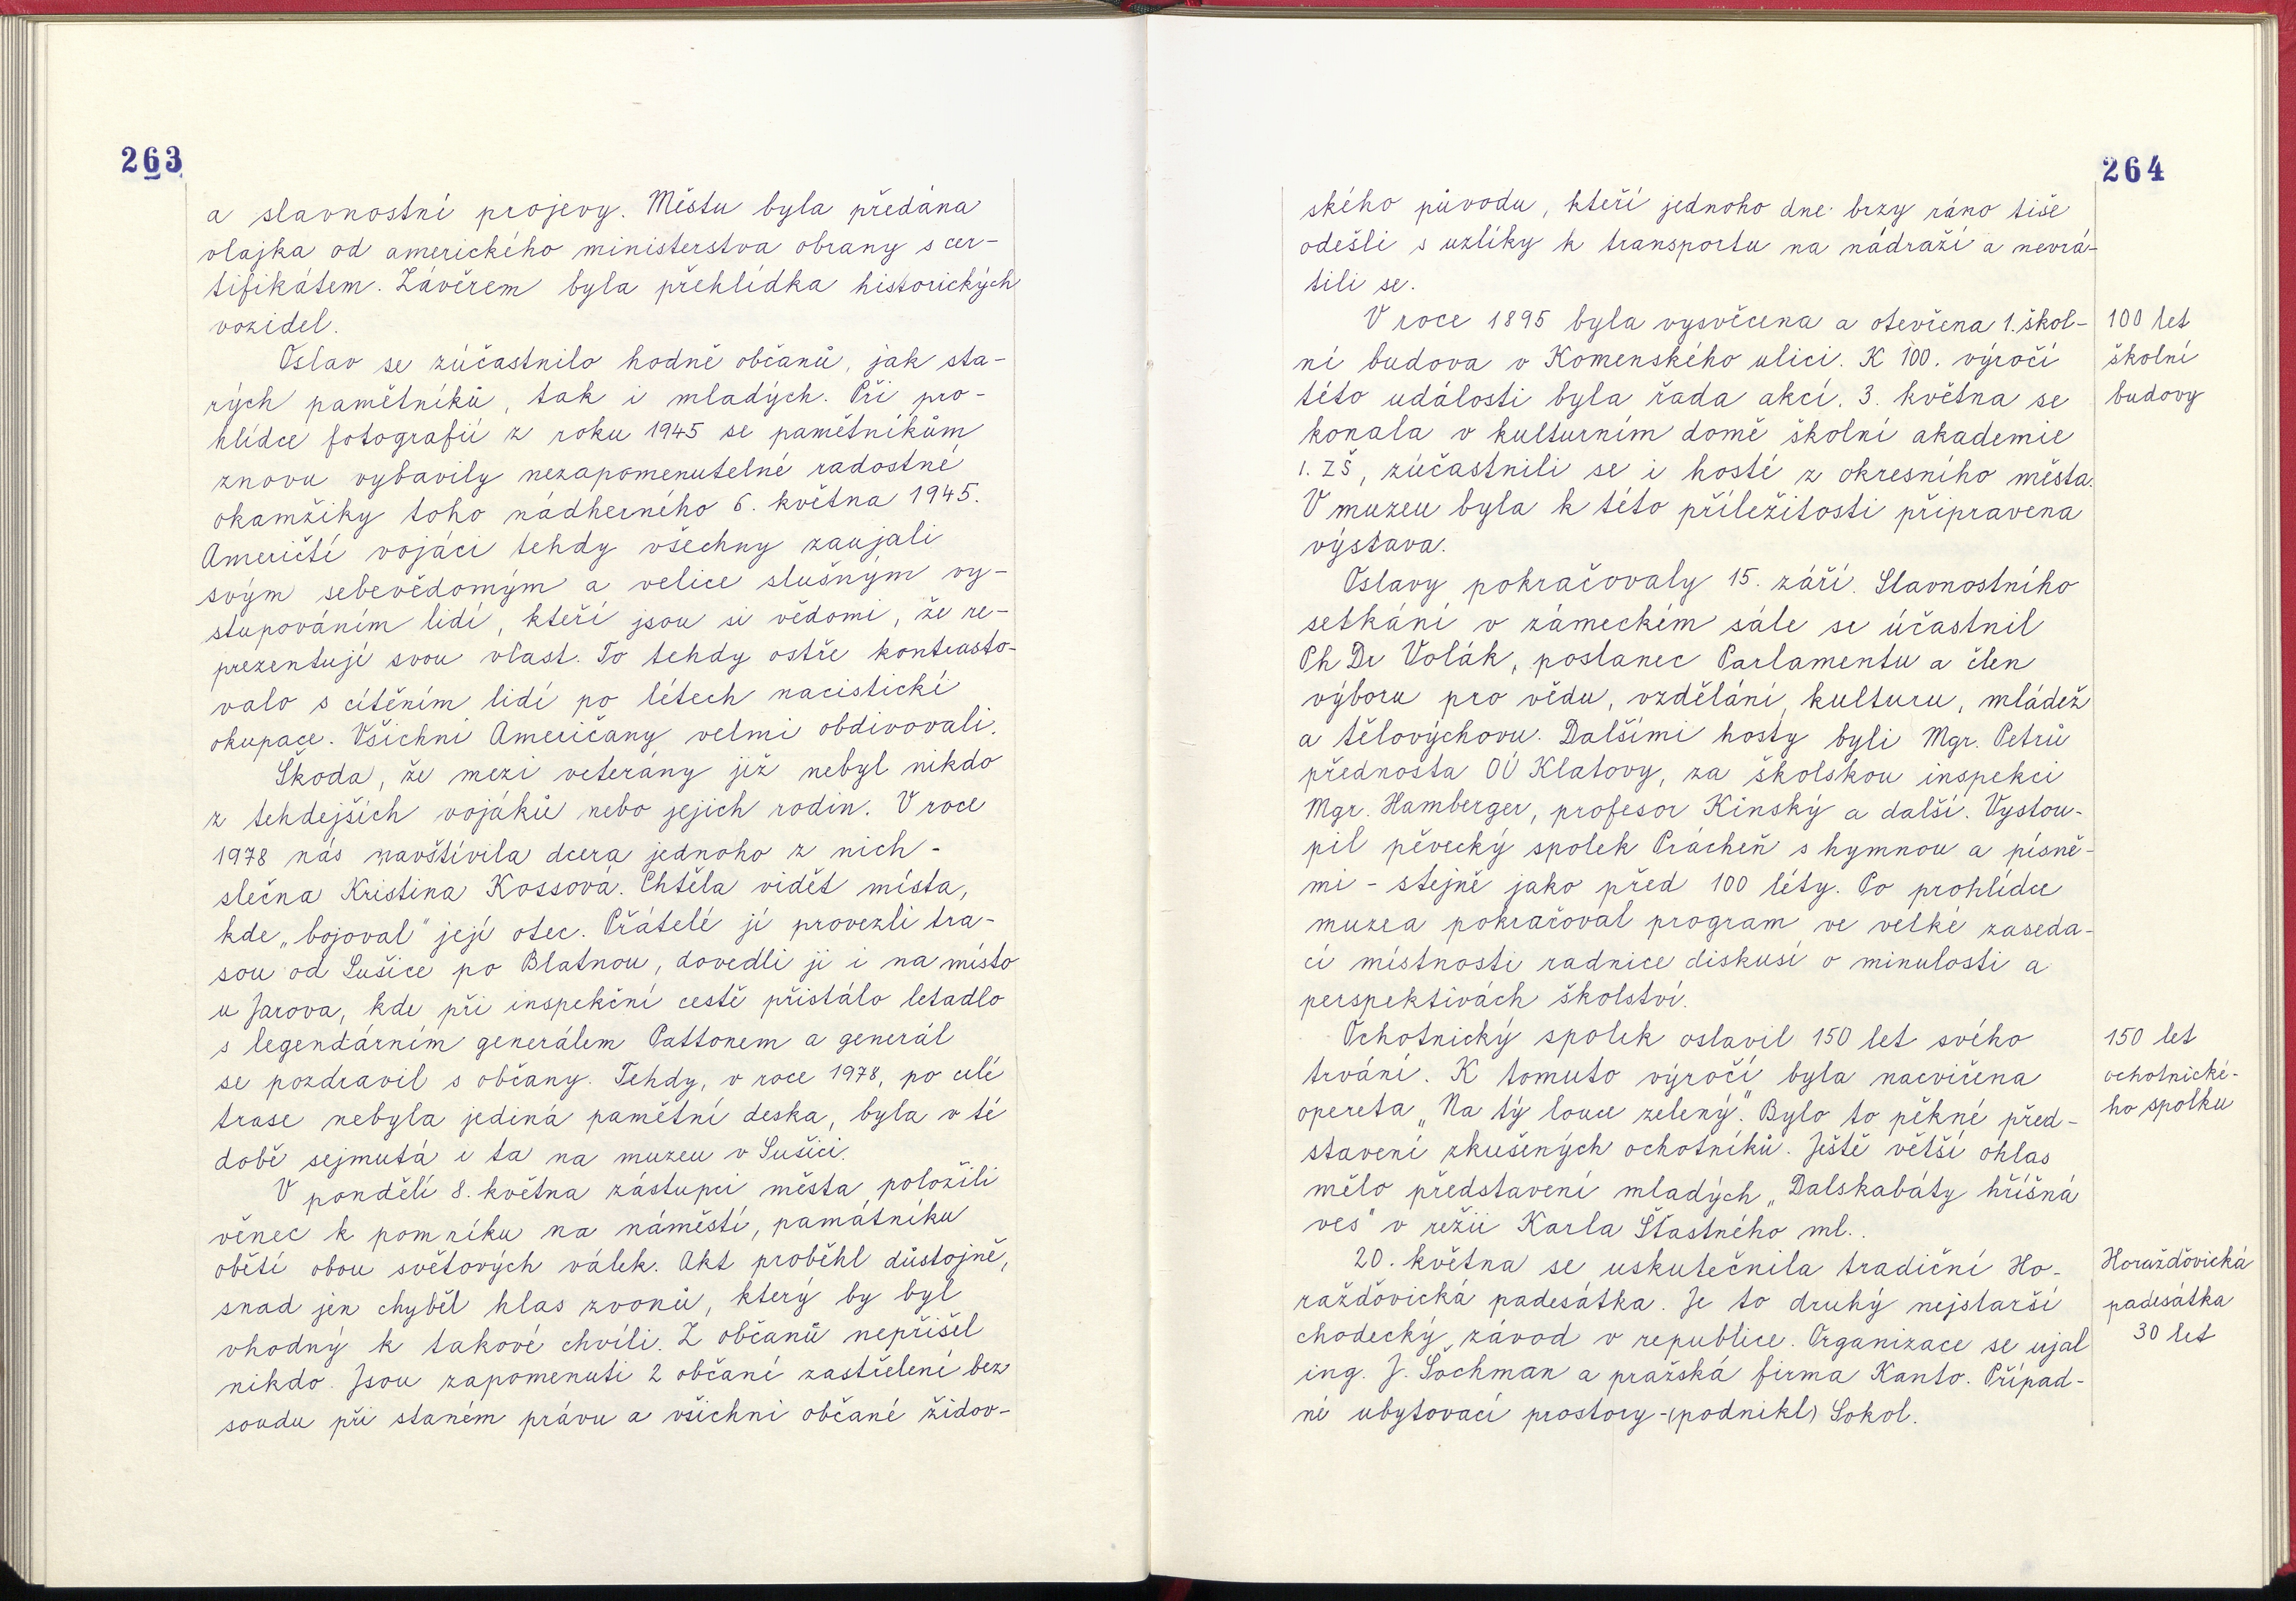 263
a slavnostní projevy. Městu byla předána
vlajka od amerického ministerstva obrany s cer-
tifikátem. Závěrem byla přehlídka historických
vozidel.
Oslav se zúčastnilo hodně občanů, jak sta-
rých pamětníků, tak i mladých. Při pro-
hlídce fotografií z roku 1945 se pamětníkům
znovu vybavily nezapomenutelné radostné
okamžiky toho nádherného 6. května 1945.
Američtí vojáci tehdy všechny zaujali
svým sebevědomým a velice slušným vy-
stupováním lidí, kteří jsou si vědomi, že re-
prezentují svou vlast. To tehdy ostře kontrasto-
valo s cítěním lidí po létech nacistické
okupace. Všichni Američany velmi obdivovali.
Škoda, že mezi veterány již nebyl nikdo
z tehdejších vojáků nebo jejich rodin. V roce
1978 nás navštívila dcera jednoho z nich -
slečna Kristina Kossová. Chtěla vidět místa,
kde „bojoval" její otec. Přátelé ji provezli tra-
sou od Sušice po Blatnou, dovedli ji i na místo
u Jarova, kde při inspekční cestě přistálo letadlo
s legendárním generálem Pattonem a generál
se pozdravil s občany. Tehdy, v roce 1978, po celé
trase nebyla jediná pamětní deska, byla v té
době sejmutá i ta na muzeu v Sušici.
V pondělí 8. května zástupci města položili
věnec k pomníku na náměstí, památníku
obětí obou světových válek. Akt proběhl důstojně,
snad jen chyběl hlas zvonů, který by byl
vhodný k takové chvíli. Z občanů nepřišel
nikdo. Jsou zapomenuti 2 občané zastřelení bez
soudu při staném právu a všichni občané židov-
264
ského původu, kteří jednoho dne brzy ráno tiše
odešli s uzlíky k transportu na nádraží a nevrá-
tili se.
V roce 1895 byla vysvěcena a otevřena 1. škol-
ní budova v Komenského ulici. K 100. výročí
této události byla řada akcí. 3. května se
konala v kulturním domě školní akademie
1. ZŠ, zúčastnili se i hosté z okresního města.
V muzeu byla k této příležitosti připravena
výstava.
100 let
školní
budovy
Oslavy pokračovaly 15. září. Slavnostního
setkání v zámeckém sále se účastnil
PhDr Volák, poslanec Parlamentu a člen
výboru pro vědu, vzdělání, kulturu, mládež
a tělovýchovu. Dalšími hosty byli Mgr. Petrů
přednosta OÚ Klatovy, za školskou inspekci
Mgr. Hamberger, profesor Kinský a další. Vystou-
pil pěvecký spolek Prácheň s hymnou a písně-
mi - stejně jako před 100 léty. Po prohlídce
muzea pokračoval program ve velké zaseda-
cí místnosti radnice diskusí o minulosti a
perspektivách školství.
Ochotnický spolek oslavil 150 let svého
trvání. K tomuto výročí byla nacvičena
opereta „Na tý louce zelený". Bylo to pěkné před-
stavení zkušených ochotníků. Ještě větší ohlas
mělo představení mladých „Dalskabáty hříšná
ves" v režii Karla Šťastného ml..
150 let
ochotnické-
ho spolku
20. května se uskutečnila tradiční Ho-
ražďovická padesátka. Je to druhý nejstarší
chodecký závod v republice. Organizace se ujal
ing. J. Šochman a pražská firma Kanto. Případ-
né ubytovací prostory -(podnikl) Sokol.
Horažďovická
padesátka
30 let